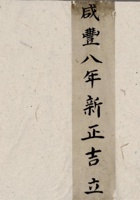 咸豐八年新正吉立